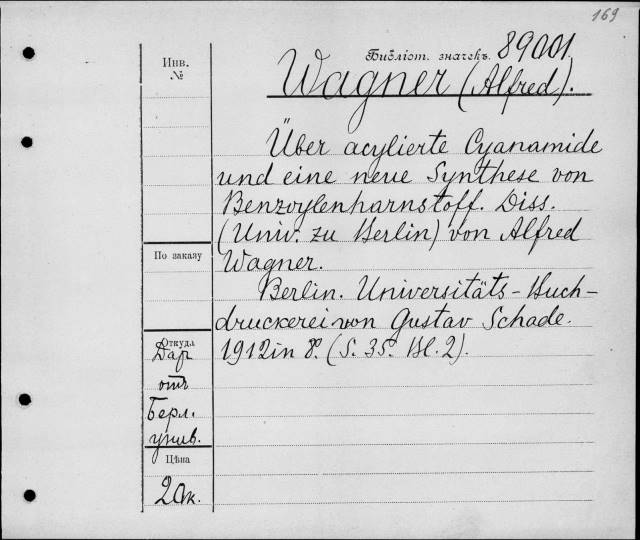 169
Библіот. значекъ. 89001
Инв.
№
Wagner (Alfred).
Über acylierte Cyanamide
und eine neue Synthese von
Benzoylenharnstoff. Diss.
(Univ. zu Berlin) von Alfred
Wagner.
Berlin. Universitäts-Buch-
druckerei von Gustav Schade.
1912 in 8º. (S. 35. Bl. 2).
По заказу
Откуда
Даръ
отъ
Берл.
унив.
Цѣна
20к.